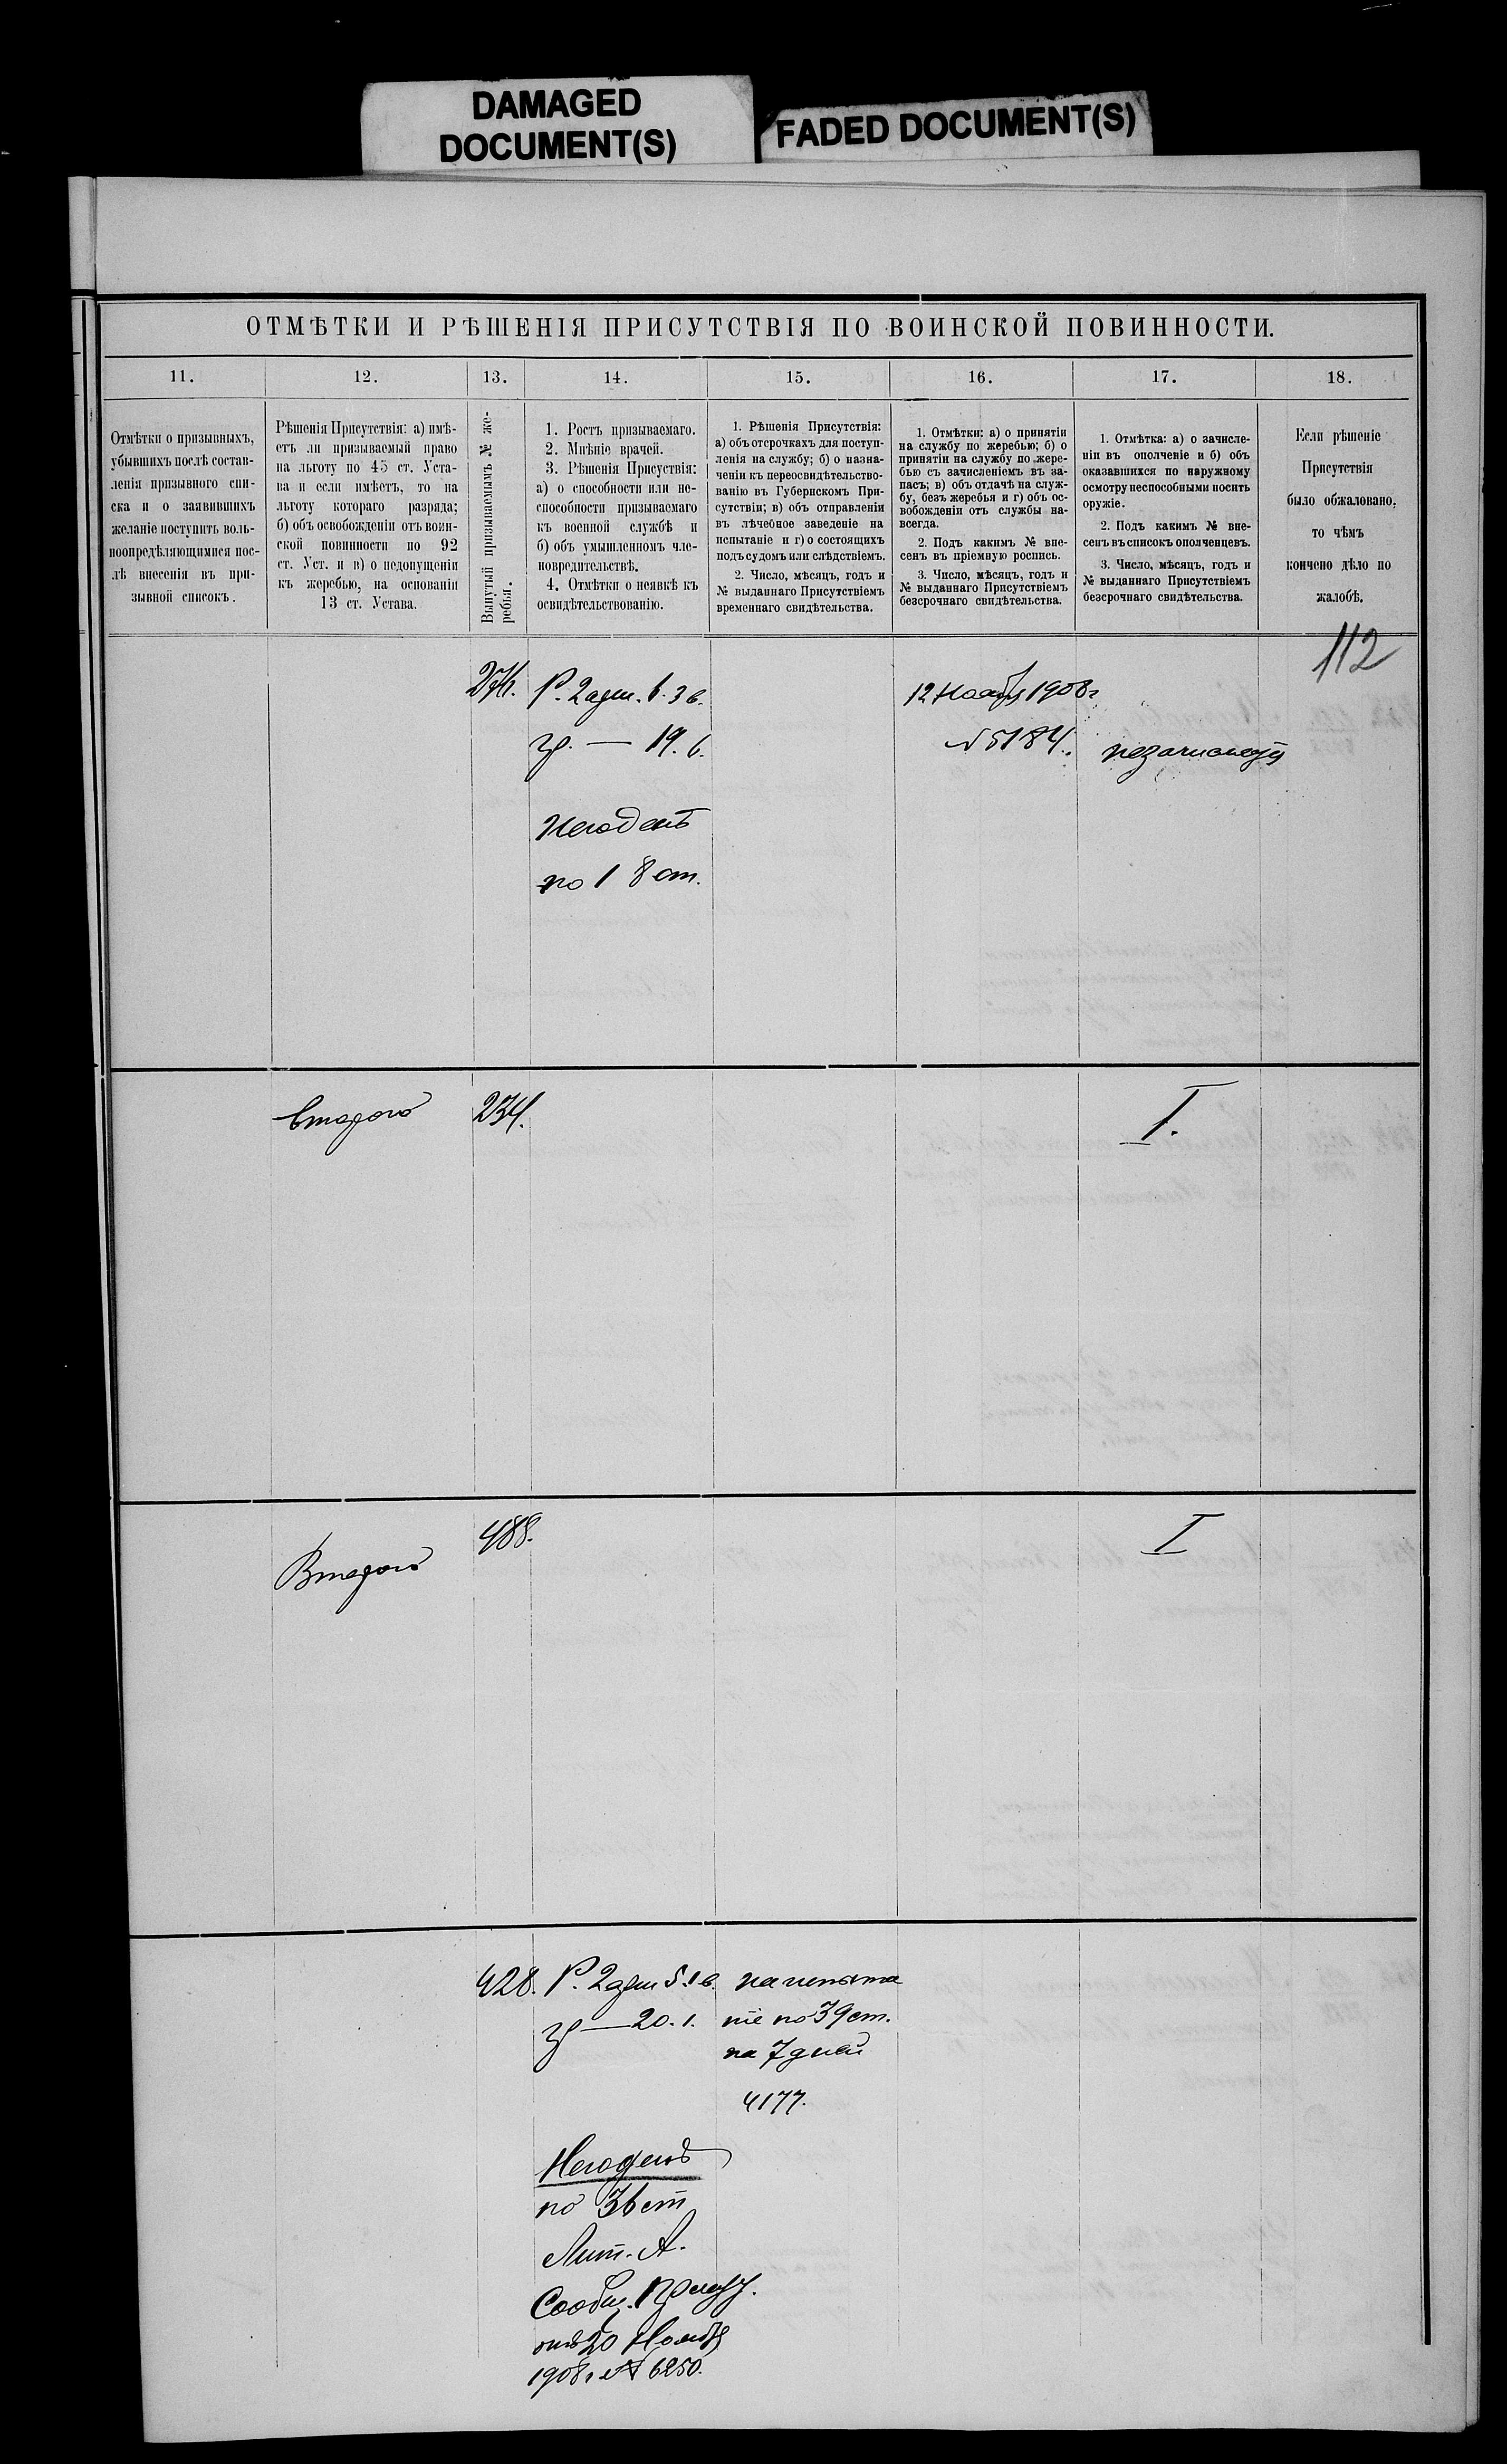 DAMAGED
DOCUMENT(S)
FADED DOCUMENT(S)
ОТМѢТКИ И РѢШЕНІЯ ПРИСУТСТВІЯ ПО ВОИНСКОЙ ПОВИННОСТИ.
11.
12.
13.
14.
15.
16.
17.
18.
Отмѣтки о призывныхъ,
убывшихъ послѣ состав-
ленія призывного спи-
ска и о заявившихъ
желаніе поступить воль-
ноопредѣляющимися пос-
лѣ внесенія въ при-
зывной списокъ.
Рѣшенія Присутствія: а) имѣ-
етъ ли призываемый право
на льготу по 45 ст. Уста-
ва и если имѣетъ, то на
льготу котораго разряда;
б) объ освобожденіи отъ воин-
ской повинности по 92
ст. Уст. и в) о недопущеніи
къ жеребью, на основаніи
13 ст. Устава.
Вынутый призываемымъ № же-
ребья.
1. Ростъ призываемаго.
2. Мнѣніе врачей.
3. Рѣшенія Присуствія:
а) о способности или не-
способности призываемаго
къ военной службѣ и
б) объ умышленномъ чле-
новредительствѣ.
4. Отмѣтки о неявкѣ къ
освидѣтельствованію.
1. Рѣшенія Присутствія:
а) объ отсрочкахъ для поступ-
ленія на службу; б) о назна-
ченіи къ переосвидѣтельство-
ванію въ Губернскомъ При-
сутствіи; в) объ отправленіи
въ лѣчебное заведеніе на
испытаніе и г) о состоящихъ
подъ судомъ или слѣдствіемъ.
2. Число, мѣсяцъ, годъ и
№ выданнаго Присутствіемъ
временнаго свидѣтельства.
1. Отмѣтки: а) о принятіи
на службу по жеребью; б) о
принятіи на службу по жере-
бью съ зачисленіемъ въ за-
пасъ; в) объ отдачѣ на служ-
бу, безъ жеребья и г) объ ос-
вобожденіи отъ службы на-
всегда.
2. Подъ какимъ № вне-
сенъ въ пріемную роспись.
3. Число, мѣсяцъ, годъ и
№ выданнаго Присутствіемъ
безсрочнаго свидѣтельства.
1. Отмѣтка: а) о зачисле-
ніи въ ополченіе и б) объ
оказавшихся по наружному
осмотру неспособными носить
оружіе.
2. Подъ какимъ № вне-
сенъ въ списокъ ополченцевъ.
3. Число, мѣсяцъ, годъ и
№ выданнаго Присутствіемъ
безсрочнаго свидѣтельства.
Если рѣшеніе
Присутствія
было обжаловано,
то чѣмъ
кончено дѣло по
жалобѣ.
112
Р. 2 арш. 6. 3 в.
гр. — 19. 6.
Негоденъ
по 18 ст.
12 Ноября 1908 г
№ 5184.
Второго
234.
I.
Второго
488.
I
428.
Р. 2 арш 5. 1 в.
гр — 20. 1.
на испыта
ніе по 39 ст.
на 7 дней
4177.
Негоденъ
по 36 ст
Лит. А.
отъ 20 Ноября
1908 г № 6250.